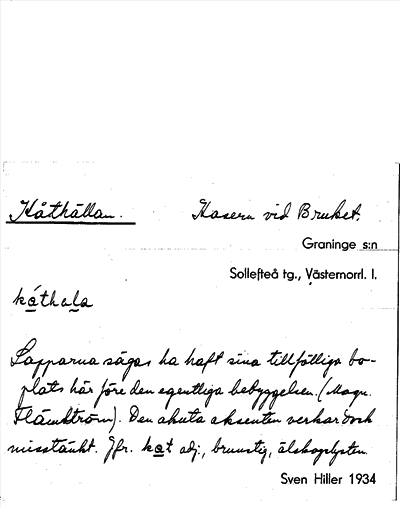 Kåthällan. Kasern vid Bruket.
Graninge s:n
Sollefteå tg., Västernorrl. l.
kåthala
Lapparna sägas ha haft sina tillfälliga bo-
plats här före den egentliga bebyggelsen. (Magn.
Flämström). Den akuta aksenten verkar dock
misstänkt. Jfr. kat adj., brunstig, älskogslysten.
Sven Hiller 1934